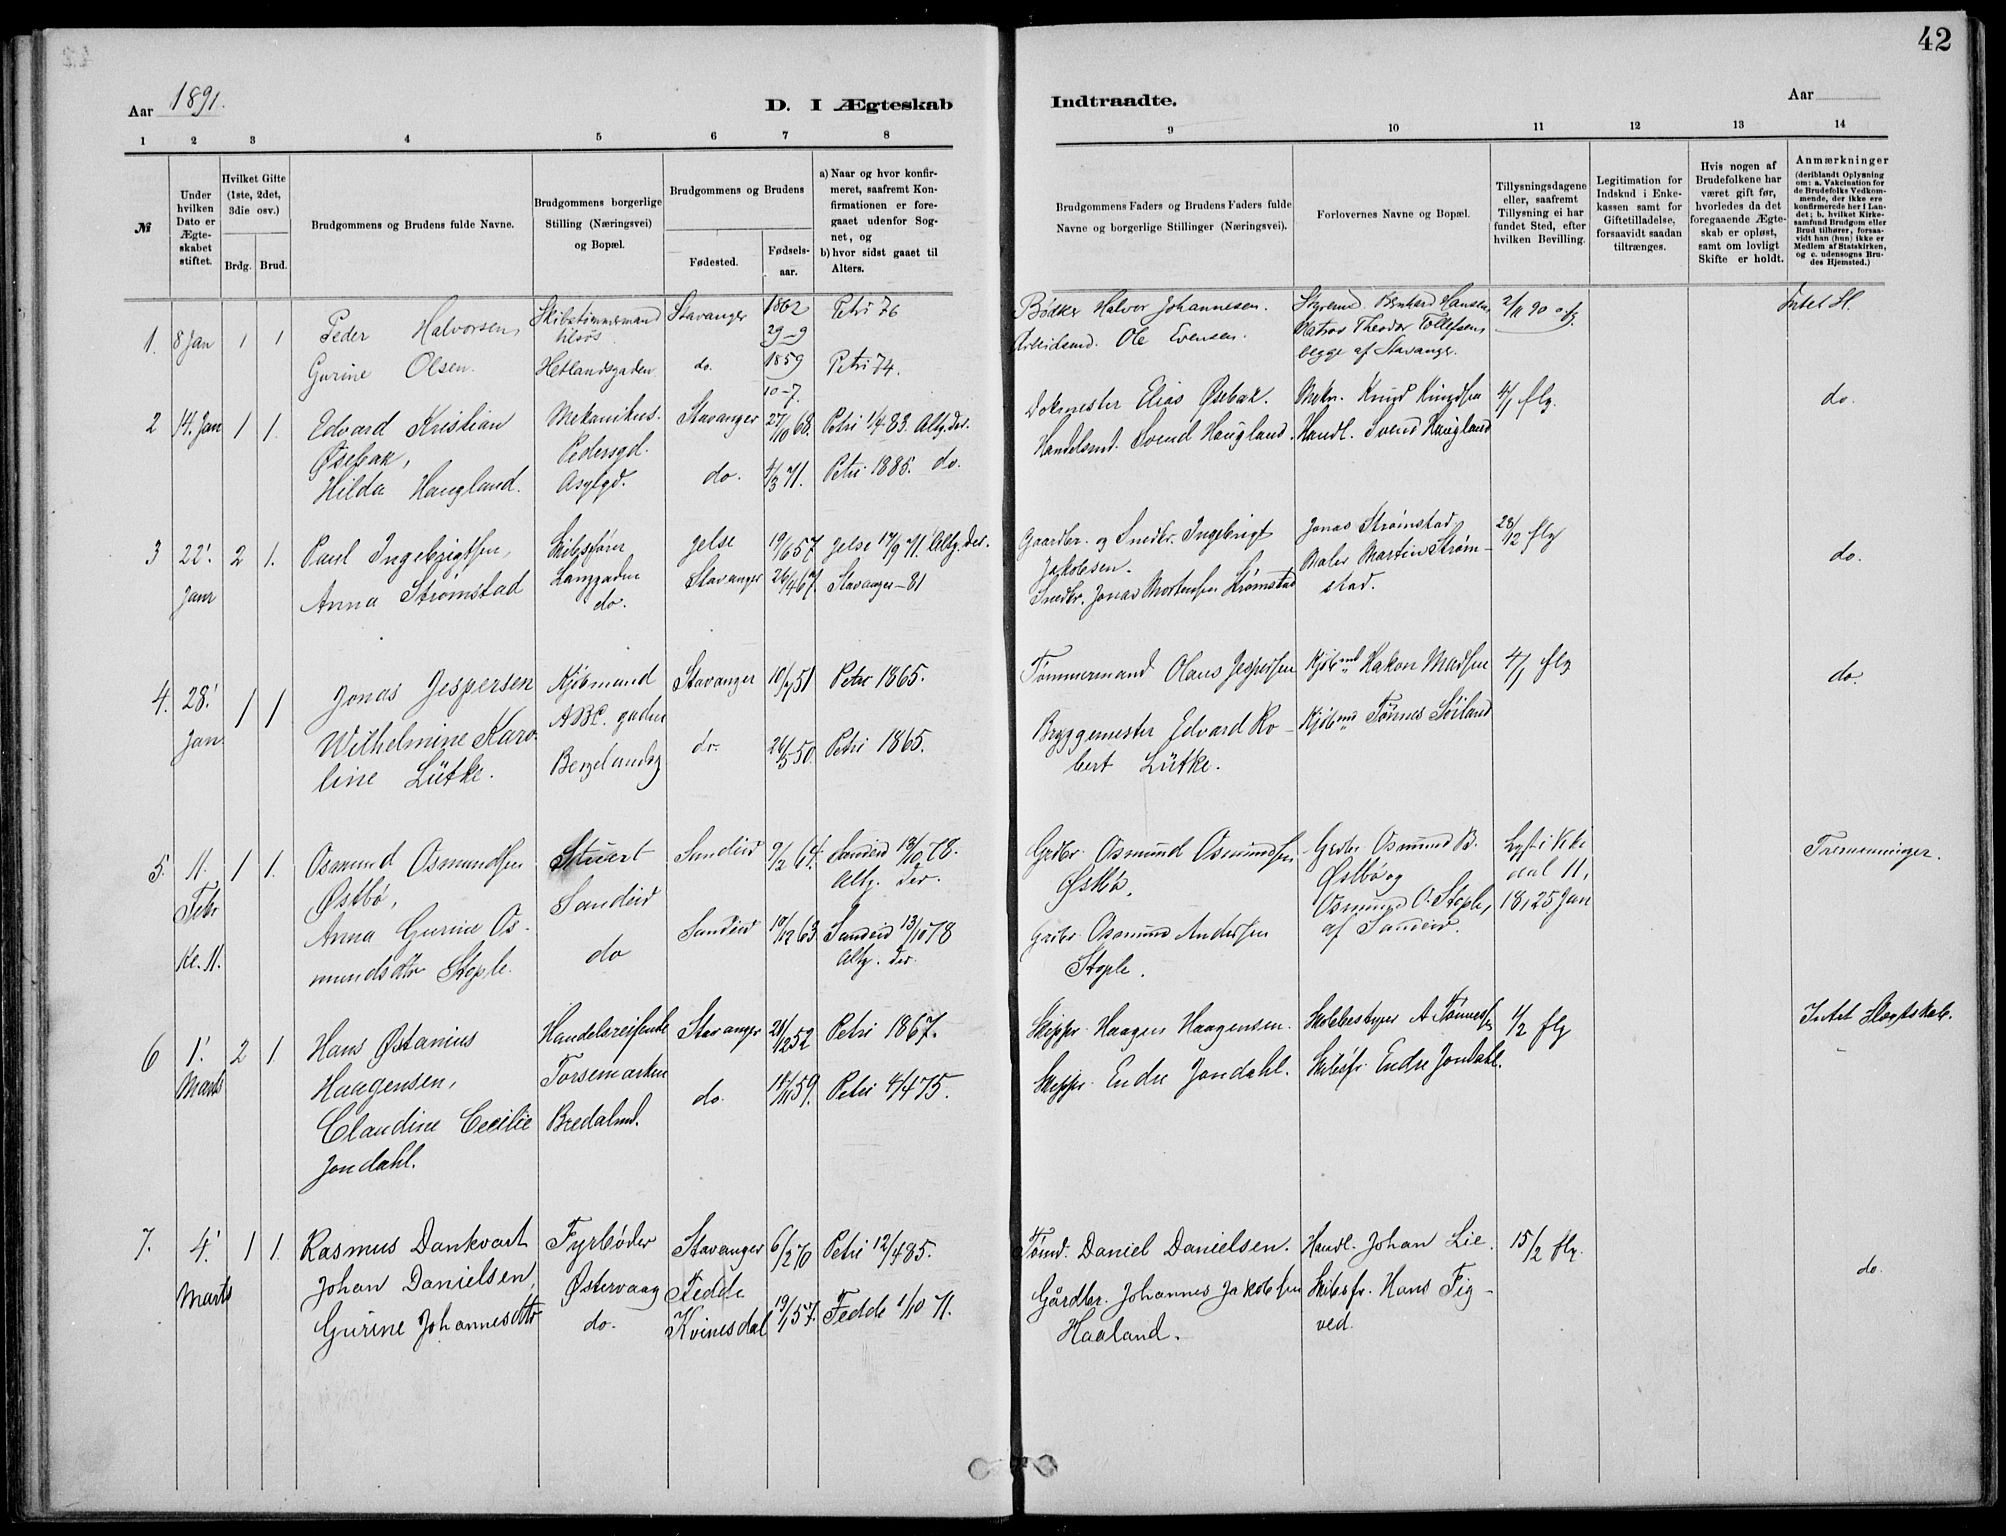 42
Aar 1891.
D. I Ægteskab
Indtraadte.
Aar
1 2 3 4 5 6 7 8
9 10 11 12 13 14
№
Under hvilken Dato er Ægteskabet stiftet.
Hvilket Gifte (1ste, 2det, 3die osv.)
Brdg. Brud.
Brudgommens og Brudens fulde Navne.
Brudgommens borgerlige Stilling (Næringsvei) og Bopæl.
Brudgommens og Brudens
Fødested.
Fødselsaar.
a) Naar og hvor konfirmeret, saafremt Konfirmationen er foregaaet udenfor Sognet, og
b) hvor sidst gaaet til Alters.
Brudgommens Faders og Brudens Faders fulde Navne og borgerlige Stillinger (Næringsvei).
Forlovernes Navne og Bopæl.
Tillysningsdagene eller, saafremt Tillysning ei har fundet Sted, efter hvilken Bevilling.
Legitimation for Indskud i Enkekassen samt for Giftetilladelse, forsaavidt saadan tiltrænges.
Hvis nogen af Brudefolkene har været gift før, hvorledes da det foregaaende Ægteskab er opløst, samt om lovligt Skifte er holdt.
Anmærkninger
(deriblandt Oplysning om: a. Vakcination for de Brudefolks Vedkommende, der ikke ere konfirmerede her i Landet; b. hvilket Kirkesamfund Brudgom eller Brud tilhører, forsaavidt han (hun) ikke er Medlem af Statskirken, og c. udensogns Brudes Hjemsted.)
1. 8 Jan 1 1 Peder Halvorsen, Skibstømmermand tilsøs Stavanger 1862 29-9 Petri 76
Gurine Olsen. Hetlandsgaden do. 1859 10-7. Petri 74.
Bødker Halvor Johannesen. Styrmd Bernhard Hansen, 2/11 90 Intet Sl.
Arbeidsmd. Ole Evensen. Matros Theodor Tollefsen, begge af Stavanger.
2 14. Jan 1 1. Edvard Kristian Øsebak, Mekanikus. Pedersgd. Stavanger 27/10 68. Petri 1/4 83. Altg. der.
Hilda Haugland. Asylgd. do. 4/3 71. Petri 1885. do.
Dokmester Elias Øsebak. Mekn. Knud Knudsen 4/1 flg. do.
Handelsmd. Svend Haugland. Handl. Svend Haugland
3 22' Janr 2 1. Paul Ingebrigtsen, Skibsfører Langgaden Jelse 19/6 57 Jelse 17/9 71. Altg. der.
Anna Strømstad do. Stavanger 26/4 67. Stavanger - 81
Gaardbr. og Snedkr. Ingebrigt Jakobsen. Jonas Strømstad 28/12 flg do.
Snedkr. Jonas Mortensen Strømstad Maler Martin Strømstad.
4. 28' Jan 1 1 Jonas Jespersen Kjøbmand ABC. gaden Stavanger 10/7 51 Petri 1865.
Wilhelmine Karoline Lütke. Bergelandsg do. 26/5 50. Petri 1865.
Tømmermand Olaus Jespersen Kjøbmd Hakon Madsen 4/1 flg do.
Bryggemester Edvard Robert Lütke. Kjøbmd Tønnes Søiland
5. 11. Febr Kl. 11. 1 1. Osmund Osmundsen Østbø, Stuert Sandeid Sandeid 9/2 64. Sandeid 13/10 78. Altg. der.
Anna Gurine Osmundsdtr Stople. do Sandeid 10/12 63 Sandeid 13/10 78 Altg. der.
Grdbr. Osmund Osmundsen Østbø, Grdbr Osmund B. Østbø og Lyst i 11, 18, 25 Jan Tremenninger.
Grdbr. Osmund Andersen Stople. Osmund O. Stople, af Sandeid.
6 1' Marts 2 1 Hans Østanius Haagensen, Handelsreisende Torsemarken Stavanger 28/12 52 Petri 1867.
Claudine Cecilie Jondahl. Bredalmd. do. 14/11 59. Petri 4/4 75.
Skippr. Haagen Haagensen. Skolebestyrer A Tønnesen 1/2 flg Intet Slegtskab.
Skippr. Endre Jondahl. Skibsfr. Endre Jondahl.
7. 4' Marts 1 1. Rasmus Dankvart Johan Danielsen, Fyrbøder Østervaag Stavanger 6/2 70 Petri 12/4 85.
Gurine Johannesdtr do. Fedde Kvinesdal 19/1 57. Fedde 1/10 71.
Tømd. Daniel Danielsen. Handl. Johan Lie. 15/2 flg. do.
Gårdbr. Johannes Jakobsen Haaland. Skibsfr. Hans Tigved.